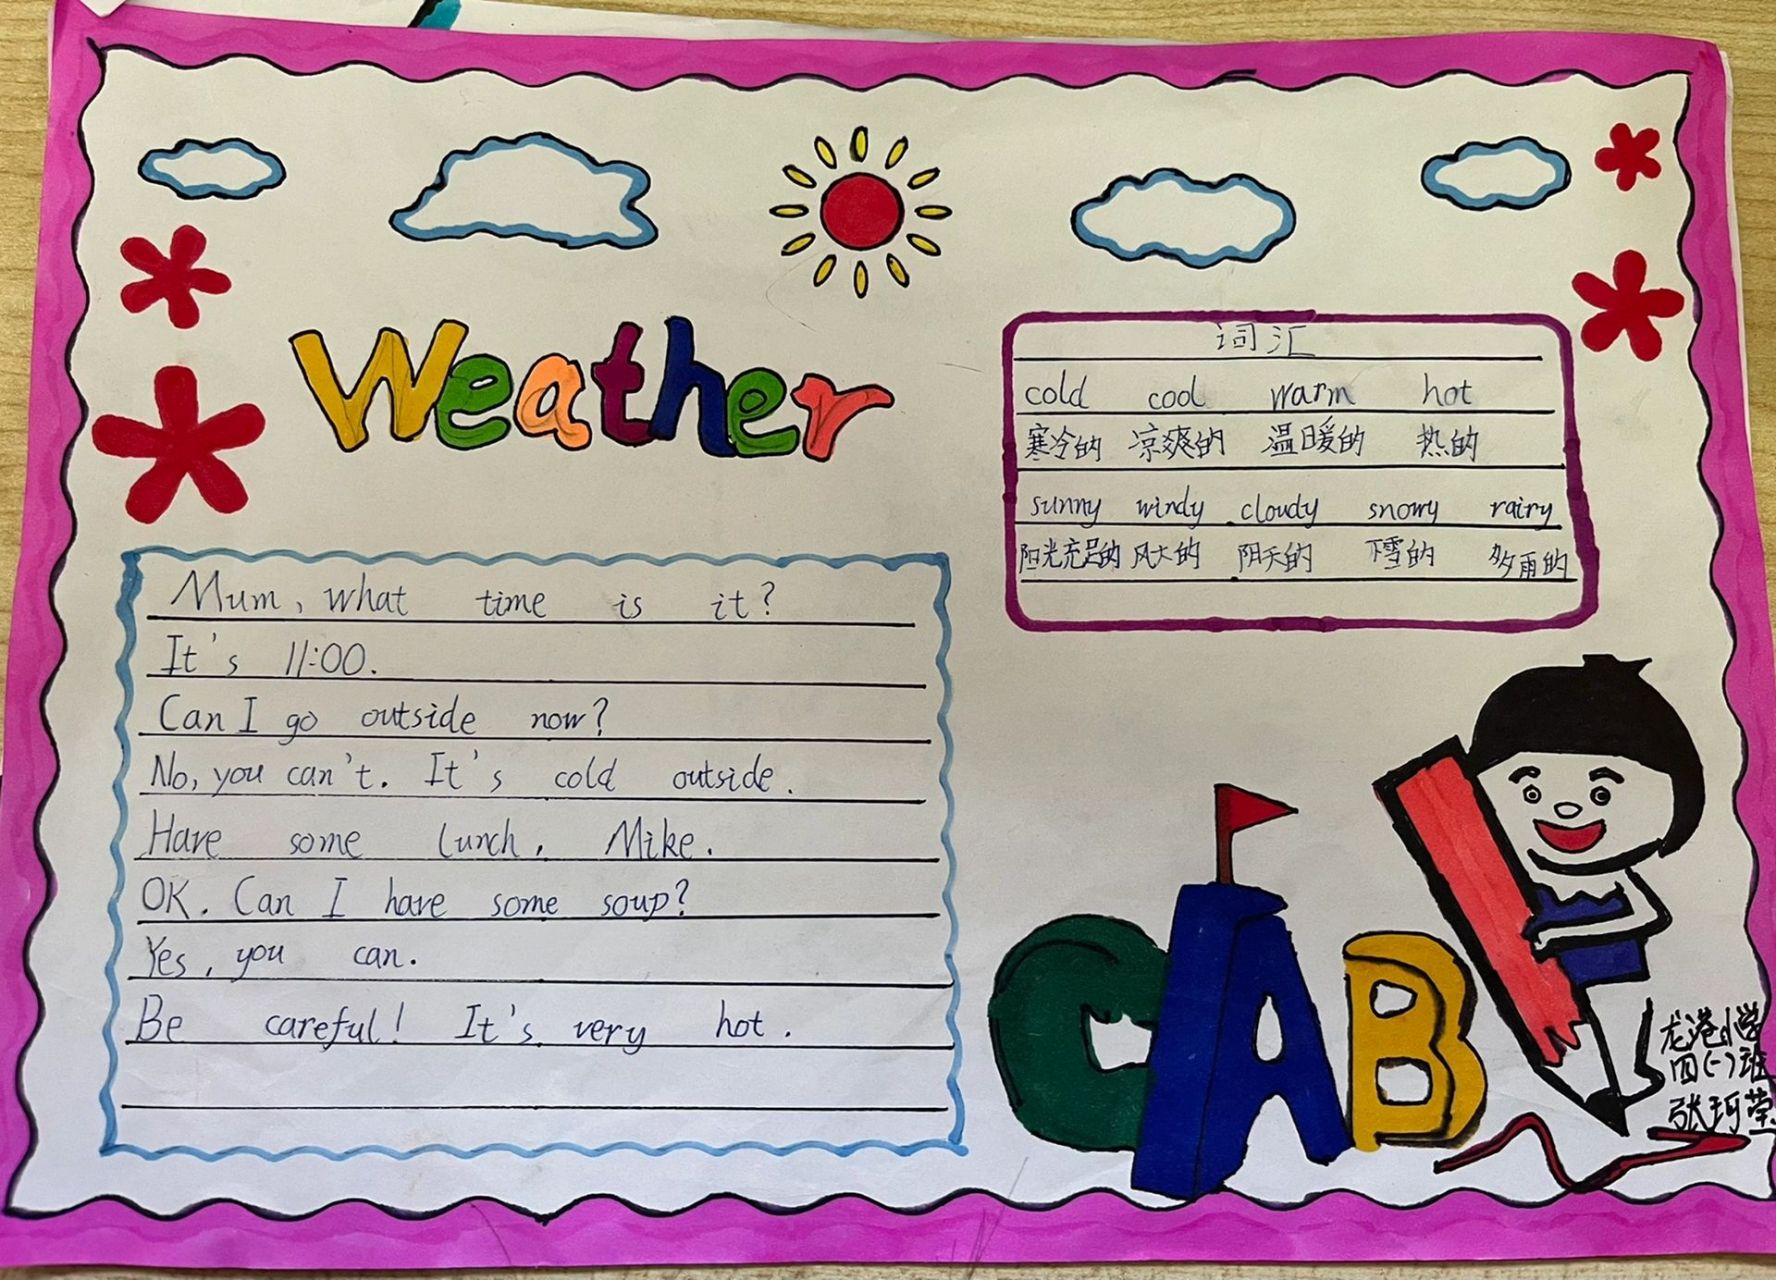 Weather
词汇
cold cool warm hot
寒冷的 凉爽的 温暖的 热的
sunny windy cloudy snowy rainy
阳光充足的 风大的 阴天的 下雪的 多雨的
Mum, what time is it?
It's 11:00.
Can I go outside now?
No, you can't. It's cold outside.
Have some lunch, Mike.
OK. Can I have some soup?
Yes, you can.
Be careful! It's very hot.
CAB
龙港小学
四(一)班
张珂莹